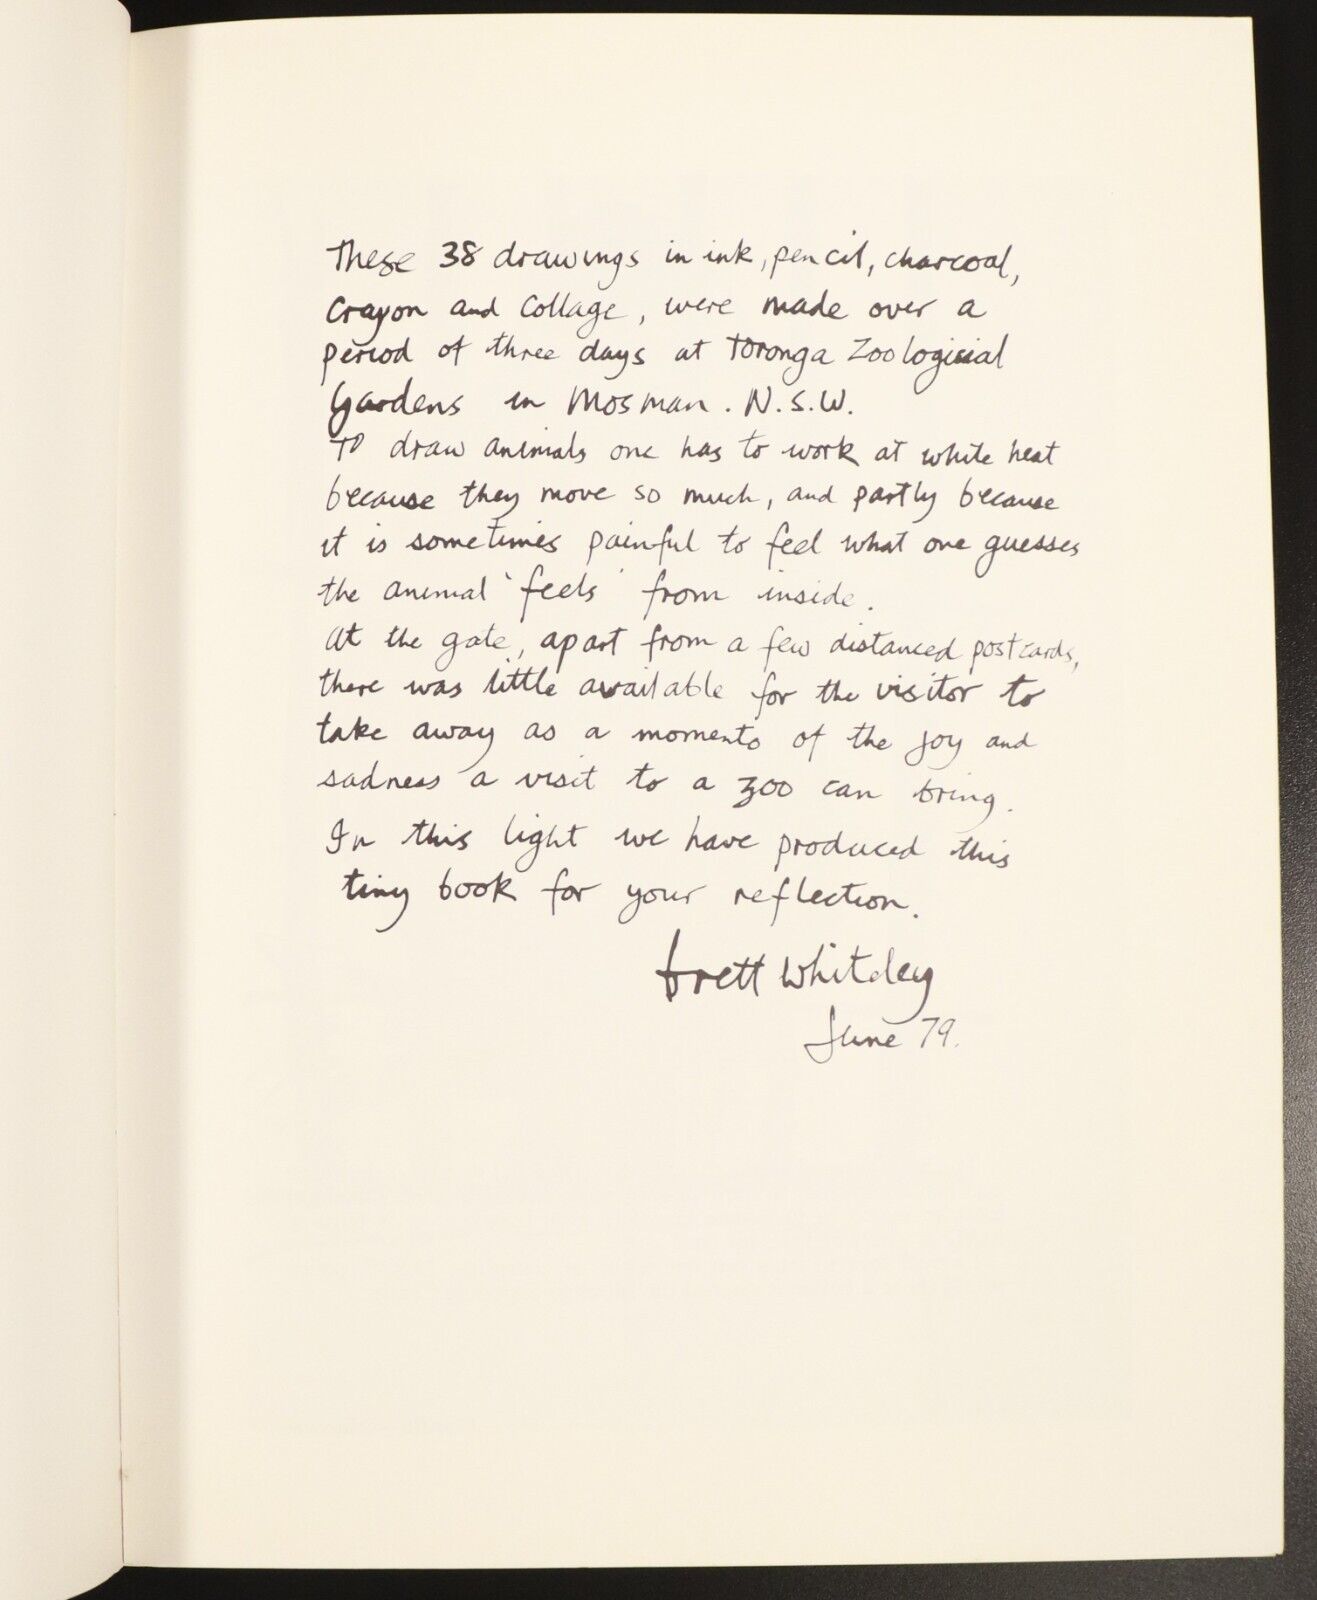 These 38 drawings in ink, pencil, charcoal,
Crayon and Collage, were made over a
period of three days at Toronga Zoological
Gardens in Mosman. N.S.W.
To draw animals one has to work at white heat
because they move so much, and partly because
it is sometimes painful to feel what one guesses
the animal 'feels' from inside.
At the gate, apart from a few distanced postcards,
there was little available for the visitor to
take away as a momento of the joy and
sadness a visit to a zoo can bring.
In this light we have produced this
tiny book for your reflection.
brett whiteley
June 79.